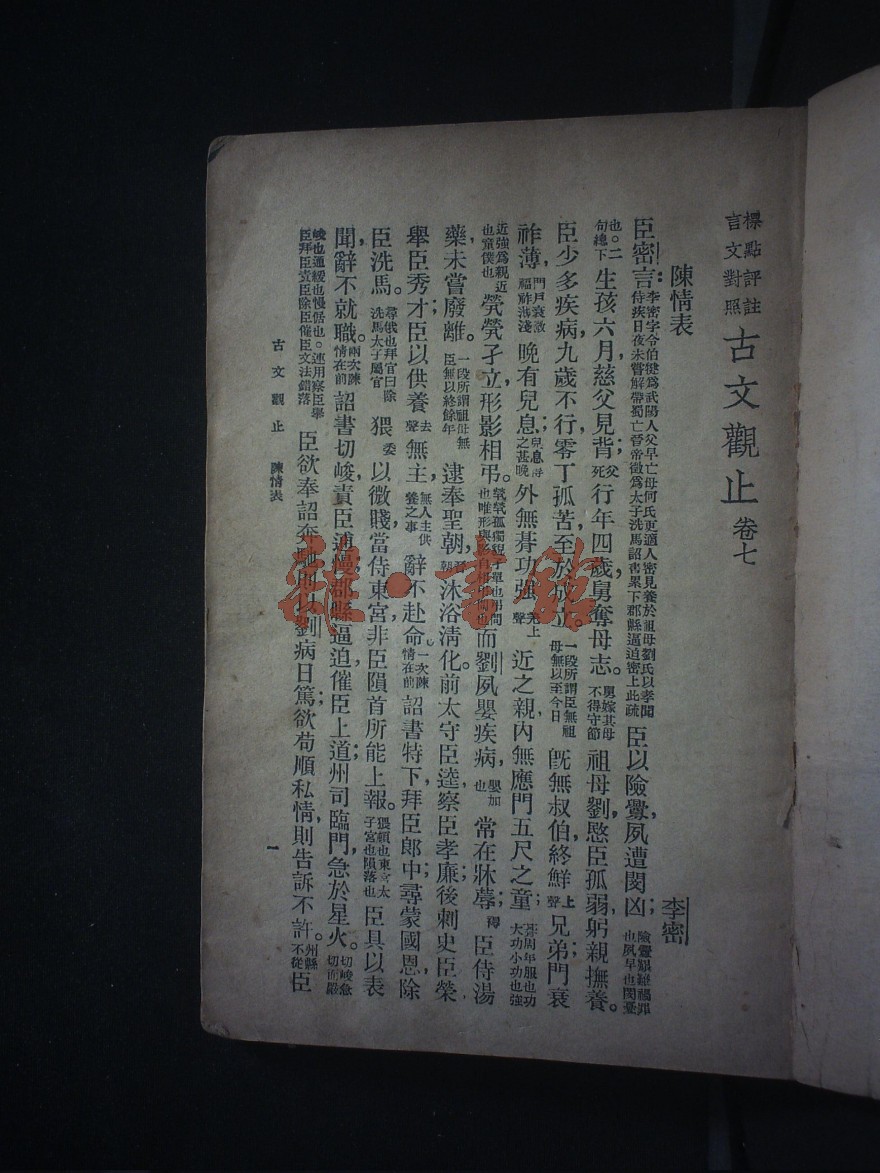 標點評註
言文對照
古文觀止 卷七
陳情表 李密
臣密言：李密字令伯犍為武陽人父早亡母何氏更適人密見養於祖母劉氏以孝聞侍疾日夜未嘗解帶蜀亡晉帝徵為太子洗馬詔書累下郡縣逼迫密上此疏 臣以險釁，夙遭閔凶；險釁艱難禍罪也夙早也閔憂
也。二句總下 生孩六月，慈父見背；父死 行年四歲，舅奪母志。舅嫁其母不得守節 祖母劉，愍臣孤弱，躬親撫養。
臣少多疾病，九歲不行，零丁孤苦，至於成立。一段所謂臣無祖母無以至今日 既無叔伯，終鮮上聲兄弟；門衰
祚薄，門戶衰微福祚淺薄 晚有兒息。兒息得之甚晚 外無朞功強上聲近之親，內無應門五尺之童；朞周年服也功大功小功也強
近強為親近也童僕也 煢煢孑立，形影相弔。煢煢孤獨貌孑單也弔問也唯形與影自相弔問也 而劉夙嬰疾病，嬰加也 常在牀蓐；褥 臣侍湯
藥，未嘗廢離。一段所謂祖母無臣無以終餘年 逮奉聖朝，晉朝 沐浴清化。前太守臣逵，察臣孝廉；後刺史臣榮，
舉臣秀才；臣以供養去聲無主，無人主供養之事 辭不赴命。一次陳情在前 詔書特下，拜臣郎中；尋蒙國恩，除
臣洗馬。尋俄也拜官曰除洗馬太子屬官 猥委以微賤，當侍東宮，非臣隕首所能上報。猥頓也東宮太子宮也隕落也 臣具以表
聞，辭不就職。兩次陳情在前 詔書切峻，責臣逋慢；郡縣逼迫，催臣上道；州司臨門，急於星火。切峻急切而嚴
峻也逋緩也慢倨也。連用察臣舉臣拜臣責臣除臣催臣文法錯落 臣欲奉詔奔馳，則以劉病日篤；欲苟順私情，則告訴不許。州縣不從 臣
古文觀止 陳情表 一
雜·書館